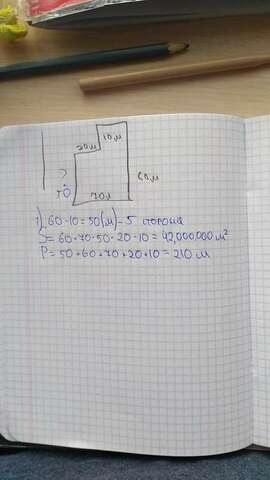 10 м
20 м
60 м
50
70 м
1) 60-10=50(м)-5 сторона
S=60·70·50·20·10=42,000,000 м²
P=50+60+70+20+10=210 м